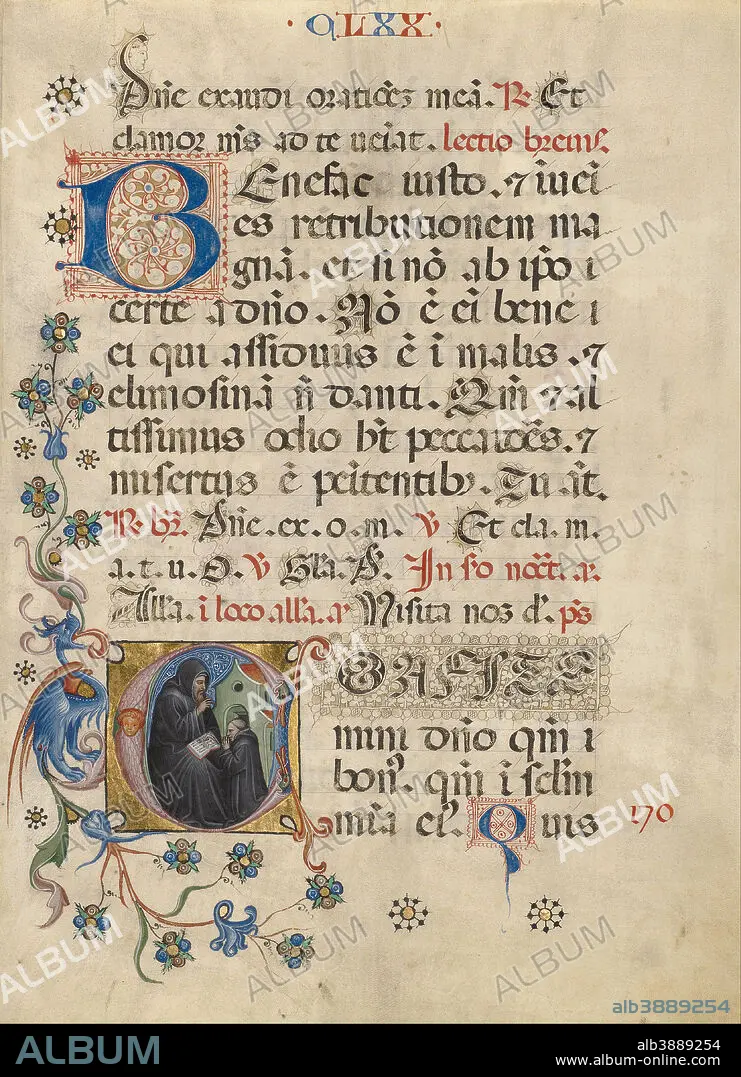 · QLXX ·
Dñe exaudi oratioẽz meã. R Et
clamor mŝ ad te ueĩat. lectio breuis.
BEnefac iusto. ⁊ ĩueĩ
es retributionem ma
gnã. et si nõ ab ipõ i
certe a dño. Nõ ẽ eĩ bene i
ei qui assiduus ẽ ĩ malis. ⁊
elimosinã ñ danti. Qm̃ ⁊ al
tissimus odio ht̃ peccatoẽs. ⁊
misertus ẽ peĩtentib₉. Tu aũt.
R. br̃. Dñe. ex. o. m. V Et cla. m.
a. t. u. D. V Gl̃a. P. In sõ noct. a.
All̃a. i loco all̃a. a Visita nos d. ps
COnfite
mini dño qm̃ i
bon⁹. qm̃ ĩ sclm̃
mĩa eĩ. Quis
170
ALBUM
alb3889254
ALBUM
alb3889254
www.album-online.com